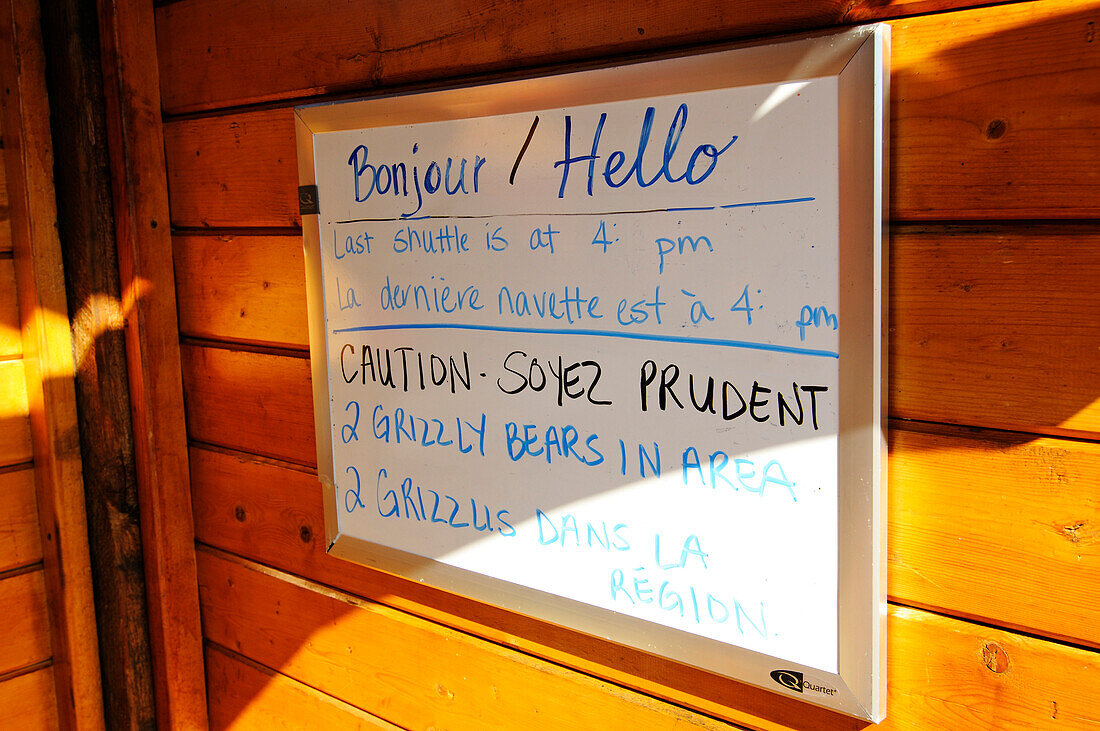 Bonjour / Hello
Last shuttle is at 4: pm
La dernière navette est à 4: pm
CAUTION - SOYEZ PRUDENT
2 GRIZZLY BEARS IN AREA
2 GRIZZLIS DANS LA
RÉGION.
Quartet